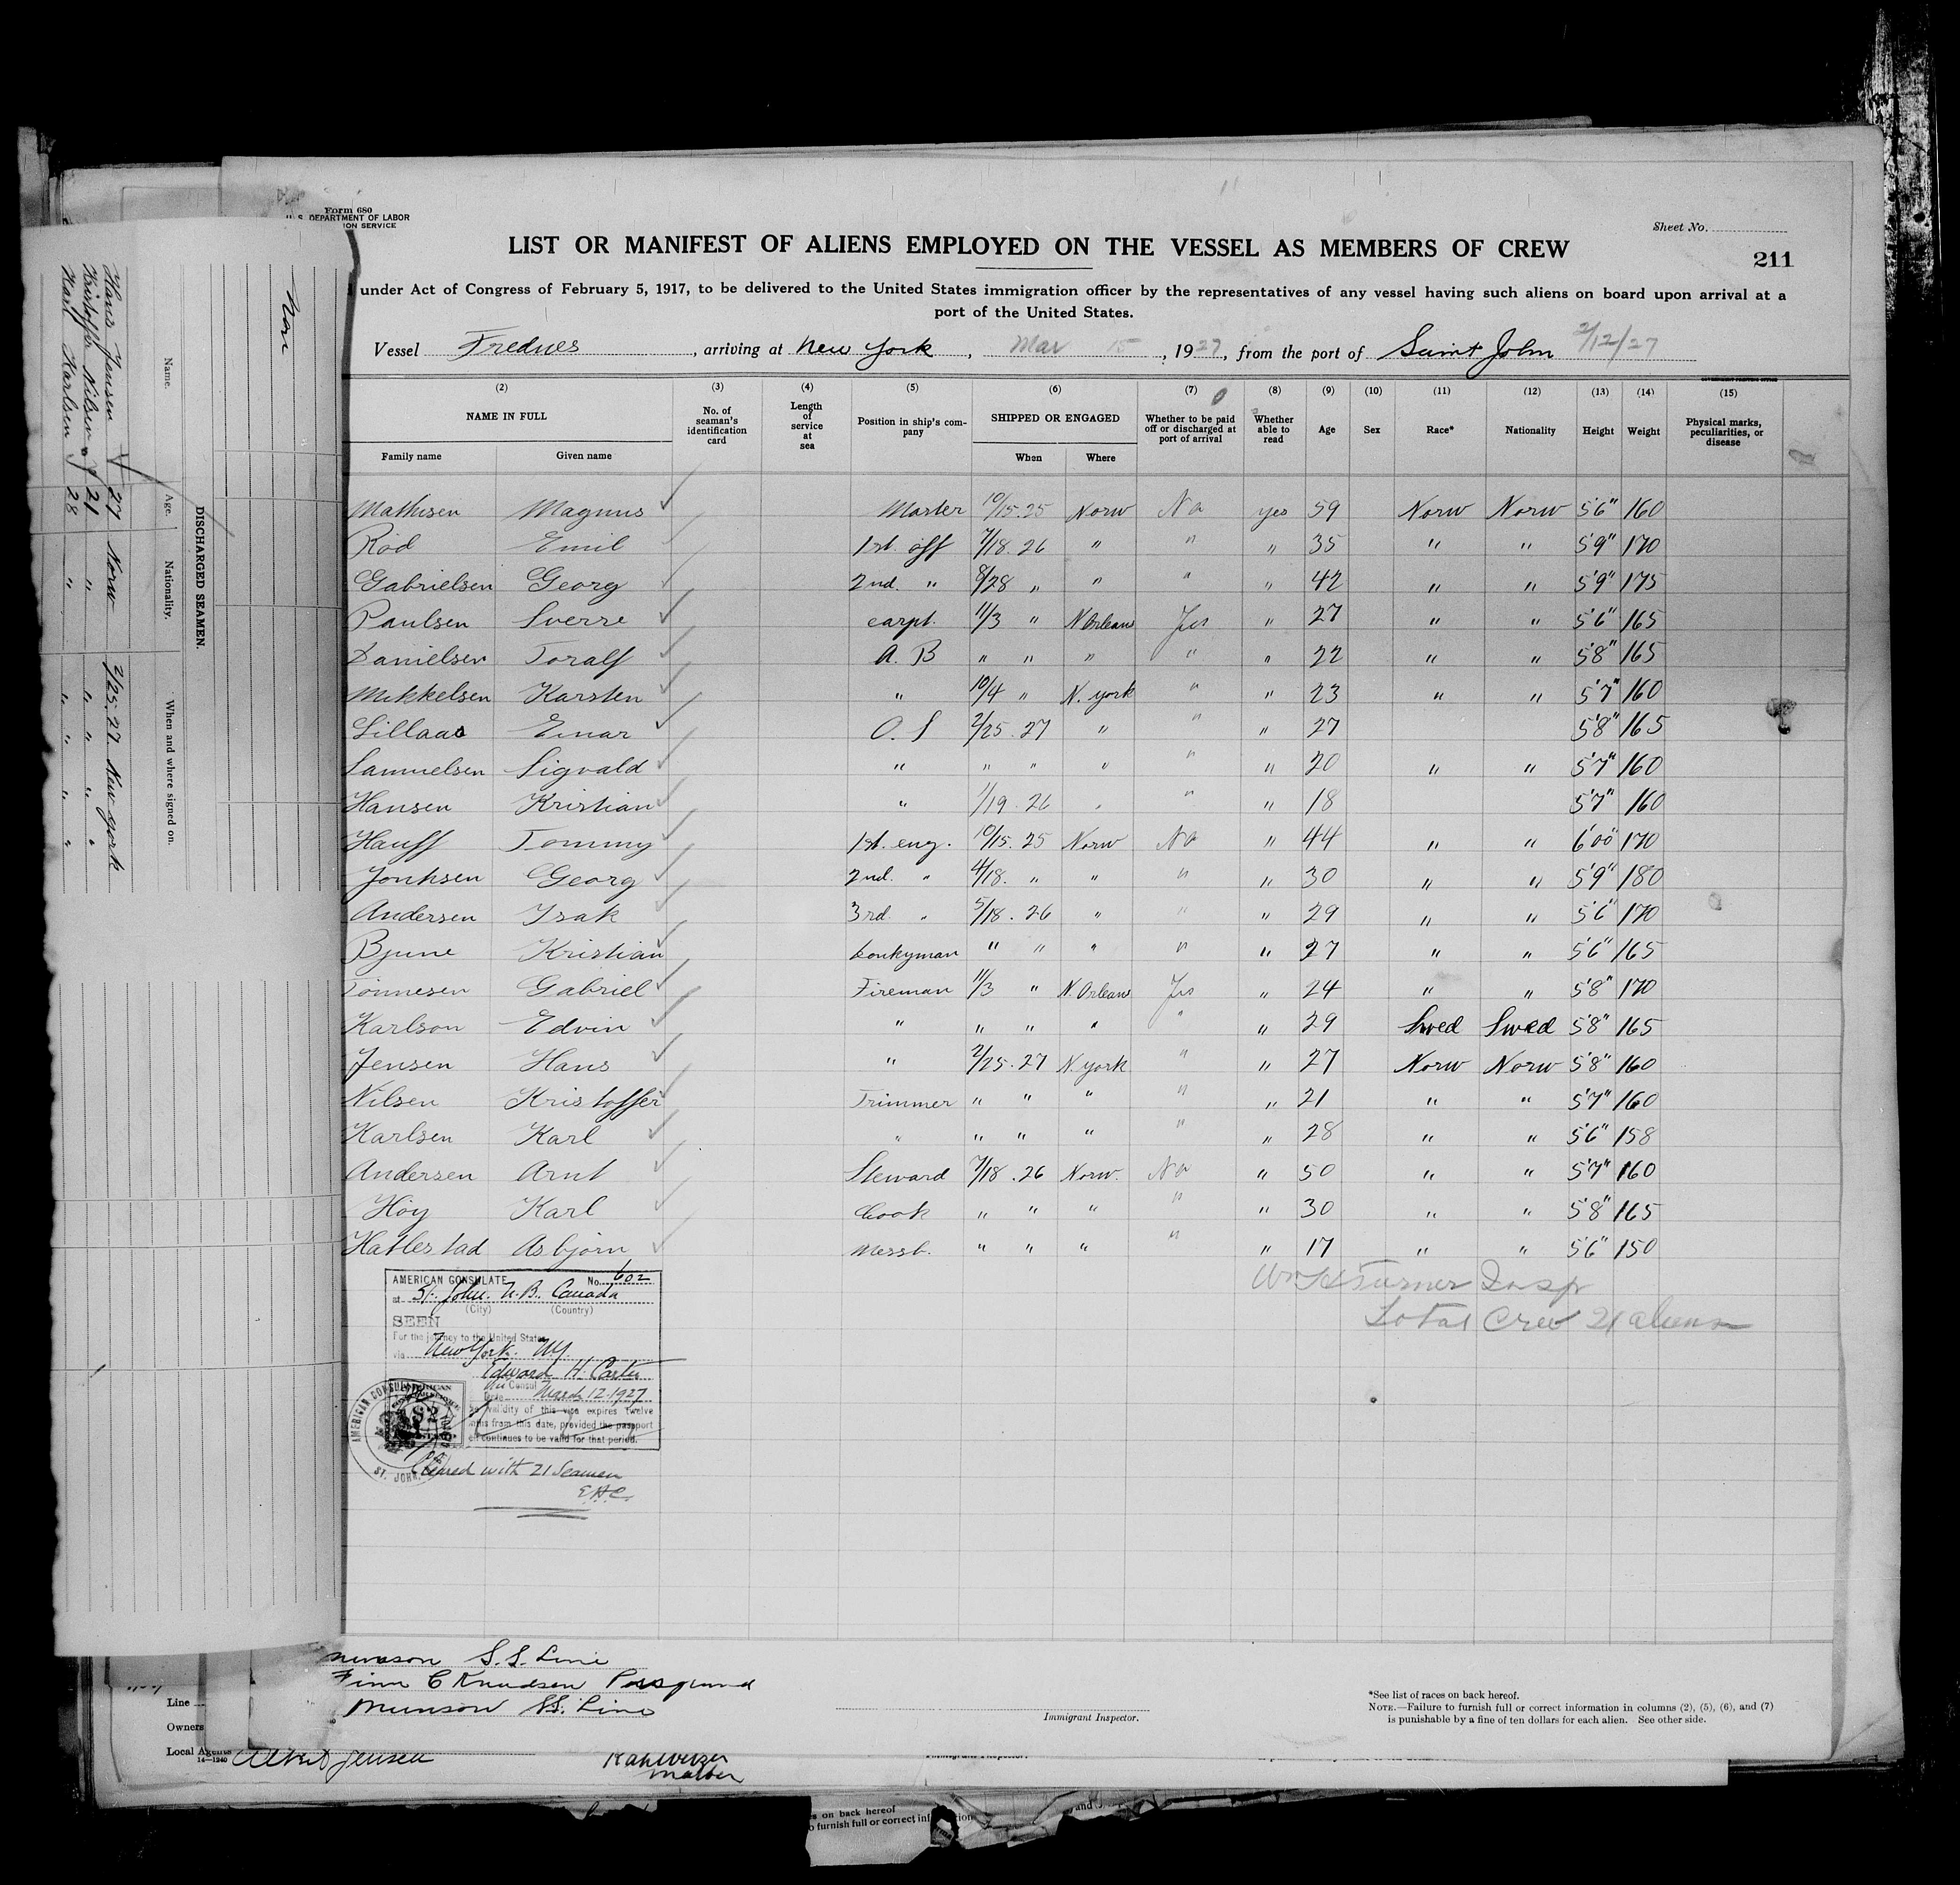 Form 680
U. S. DEPARTMENT OF LABOR
ION SERVICE
Sheet No.
LIST OR MANIFEST OF ALIENS EMPLOYED ON THE VESSEL AS MEMBERS OF CREW
211
under Act of Congress of February 5, 1917, to be delivered to the United States immigration officer by the representatives of any vessel having such aliens on board upon arrival at a
port of the United States.
Vessel Frednes, arriving at New York, Mar 15, 1927, from the port of Saint John 2/12/27
(2) (3) (4) (5) (6) (7) (8) (9) (10) (11) (12) (13) (14) (15)
NAME IN FULL No. of seaman's identification card Length of service at sea Position in ship's company SHIPPED OR ENGAGED Whether to be paid off or discharged at port of arrival Whether able to read Age Sex Race* Nationality Height Weight Physical marks, peculiarities, or disease
Family name Given name When Where
Mathisen Magnus Master 10/15.25 Norw No yes 59 Norw Norw 5'6" 160
Röd Emil 1st. off 7/18. 26 " " " 35 " " 5'9" 170
Gabrielsen Georg 2nd. " 8/28 " " " " 42 " " 5'9" 175
Paulsen Sverre carpt. 11/3 " N Orleans Yes " 27 " " 5'6" 165
Danielsen Toralf A. B " " " " " 22 " " 5'8" 165
Mikkelsen Karsten " 10/4 " N. york " " 23 " " 5'7" 160
Lillaas Einar O. S 2/25. 27 " " " 27 5'8" 165
Samuelsen Sigvald " " " " " " 20 " " 5'7" 160
Hansen Kristian " 1/19. 26 " " " 18 5'7" 160
Hauff Tommy 1st. eng. 10/15. 25 Norw No " 44 " " 6'00" 170
Jonhsen Georg 2nd. " 4/18. " " " " 30 " " 5'9" 180
Andersen Isak 3rd " 5/18. 26 " " " 29 " " 5'6" 170
Bjune Kristian Donkyman " " " " " 27 " " 5'6" 165
Tönnesen Gabriel Fireman 11/3 " N. Orleans Yes " 24 " " 5'8" 170
Karlson Edvin " " " " " " 29 Swed Swed 5'8" 165
Jensen Hans " 2/25. 27 N. york " " 27 Norw Norw 5'8" 160
Nilsen Kristoffer Trimmer " " " " " 21 " " 5'7" 160
Karlsen Karl " " " " " " 28 " " 5'6" 158
Andersen Arnt Steward 7/18. 26 Norw. No " 50 " " 5'7" 160
Höy Karl Cook " " " " " 30 " " 5'8" 165
Hatlestad Asbjörn Messb. " " " " " 17 " " 5'6" 150
Turner Insp
Total Crew 21 aliens
AMERICAN CONSULATE No. 602
at St. John. N.B. Canada
(City) (Country)
SEEN
For the journey to the United States
via New York. N.Y.
Edward H. Carter
Consul
Date March 12. 1927
validity of this visa expires twelve
from this date, provided the passport
continues to be valid for that period.
AMERICAN CONSULATE
ST. JOHN,
Cleared with 21 Seamen
E.H.C.
DISCHARGED SEAMEN.
Name. Age. Nationality. When and where signed on.
Hans Jensen 27 Norw 2/25.27. New york
Kristoffer Nilsen 21 " " " "
Karl Karlsen 28 " " " "
S.S. Line
Finn C Knudsen Porsgrund
Munson SS. Line
Immigrant Inspector.
*See list of races on back hereof.
NOTE.—Failure to furnish full or correct information in columns (2), (5), (6), and (7)
is punishable by a fine of ten dollars for each alien. See other side.
Line
Owners
Local Agents
14—1240
Albert Jensen
master
s on back hereof
o furnish full or correct information